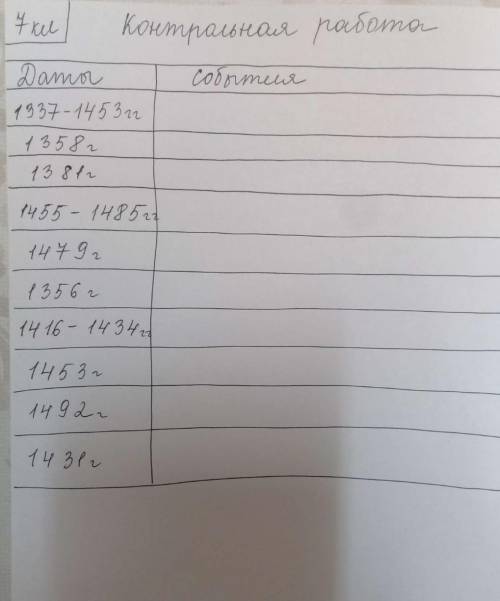 7 кл Контрольная работа
Даты События
1337-1453гг
1358г
1381г
1455 - 1485гг
1479г
1356г
1416 - 1434гг
1453г
1492г
1431г